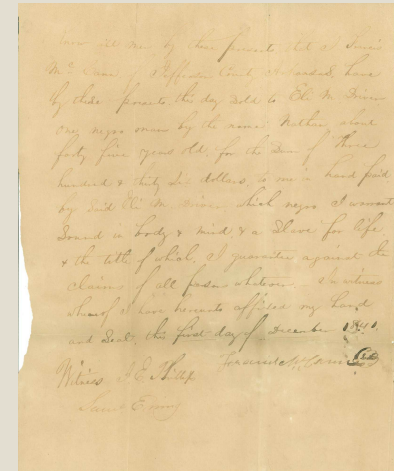 Know all men by these presents that I
Mc Cane of Jefferson County, Arkansas, have
by these presents this day sold to Eli M. Driver
one negro man by the name Nathan about
forty five years old, for the Sum of Three
hundred & thirty Six dollars to me in hand paid
by Said Eli M. Driver, which negro I warrant
Sound in body & mind & a Slave for life
& the title of which, I guarantee against the
claims of all persons whatever. In witness
whereof I have hereunto affixed my hand
and Seal, this first day of December 1841.
Witness J. E. Phillips
Saml Emory